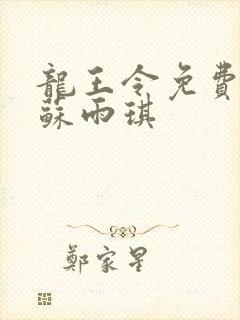 龍王令免費
蘇雨琪
鄭家星